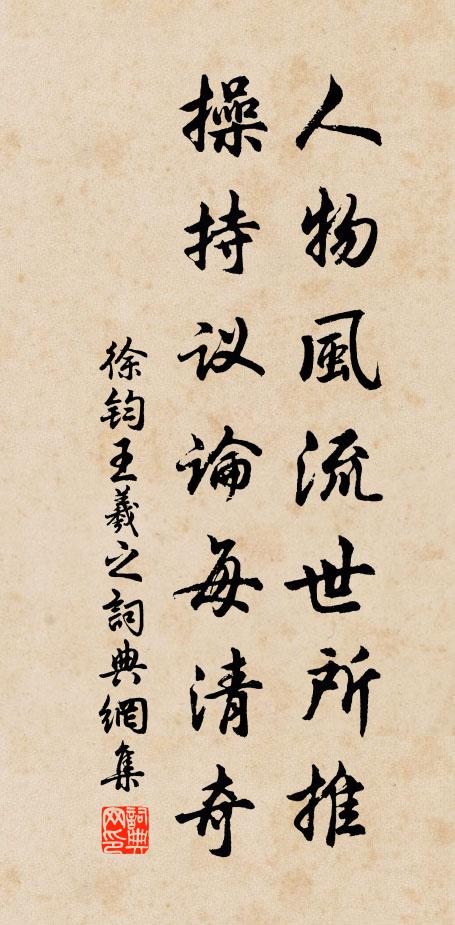 人物風流世所推
操持议論每清奇
徐钧王羲之詞典網集
詞典网印